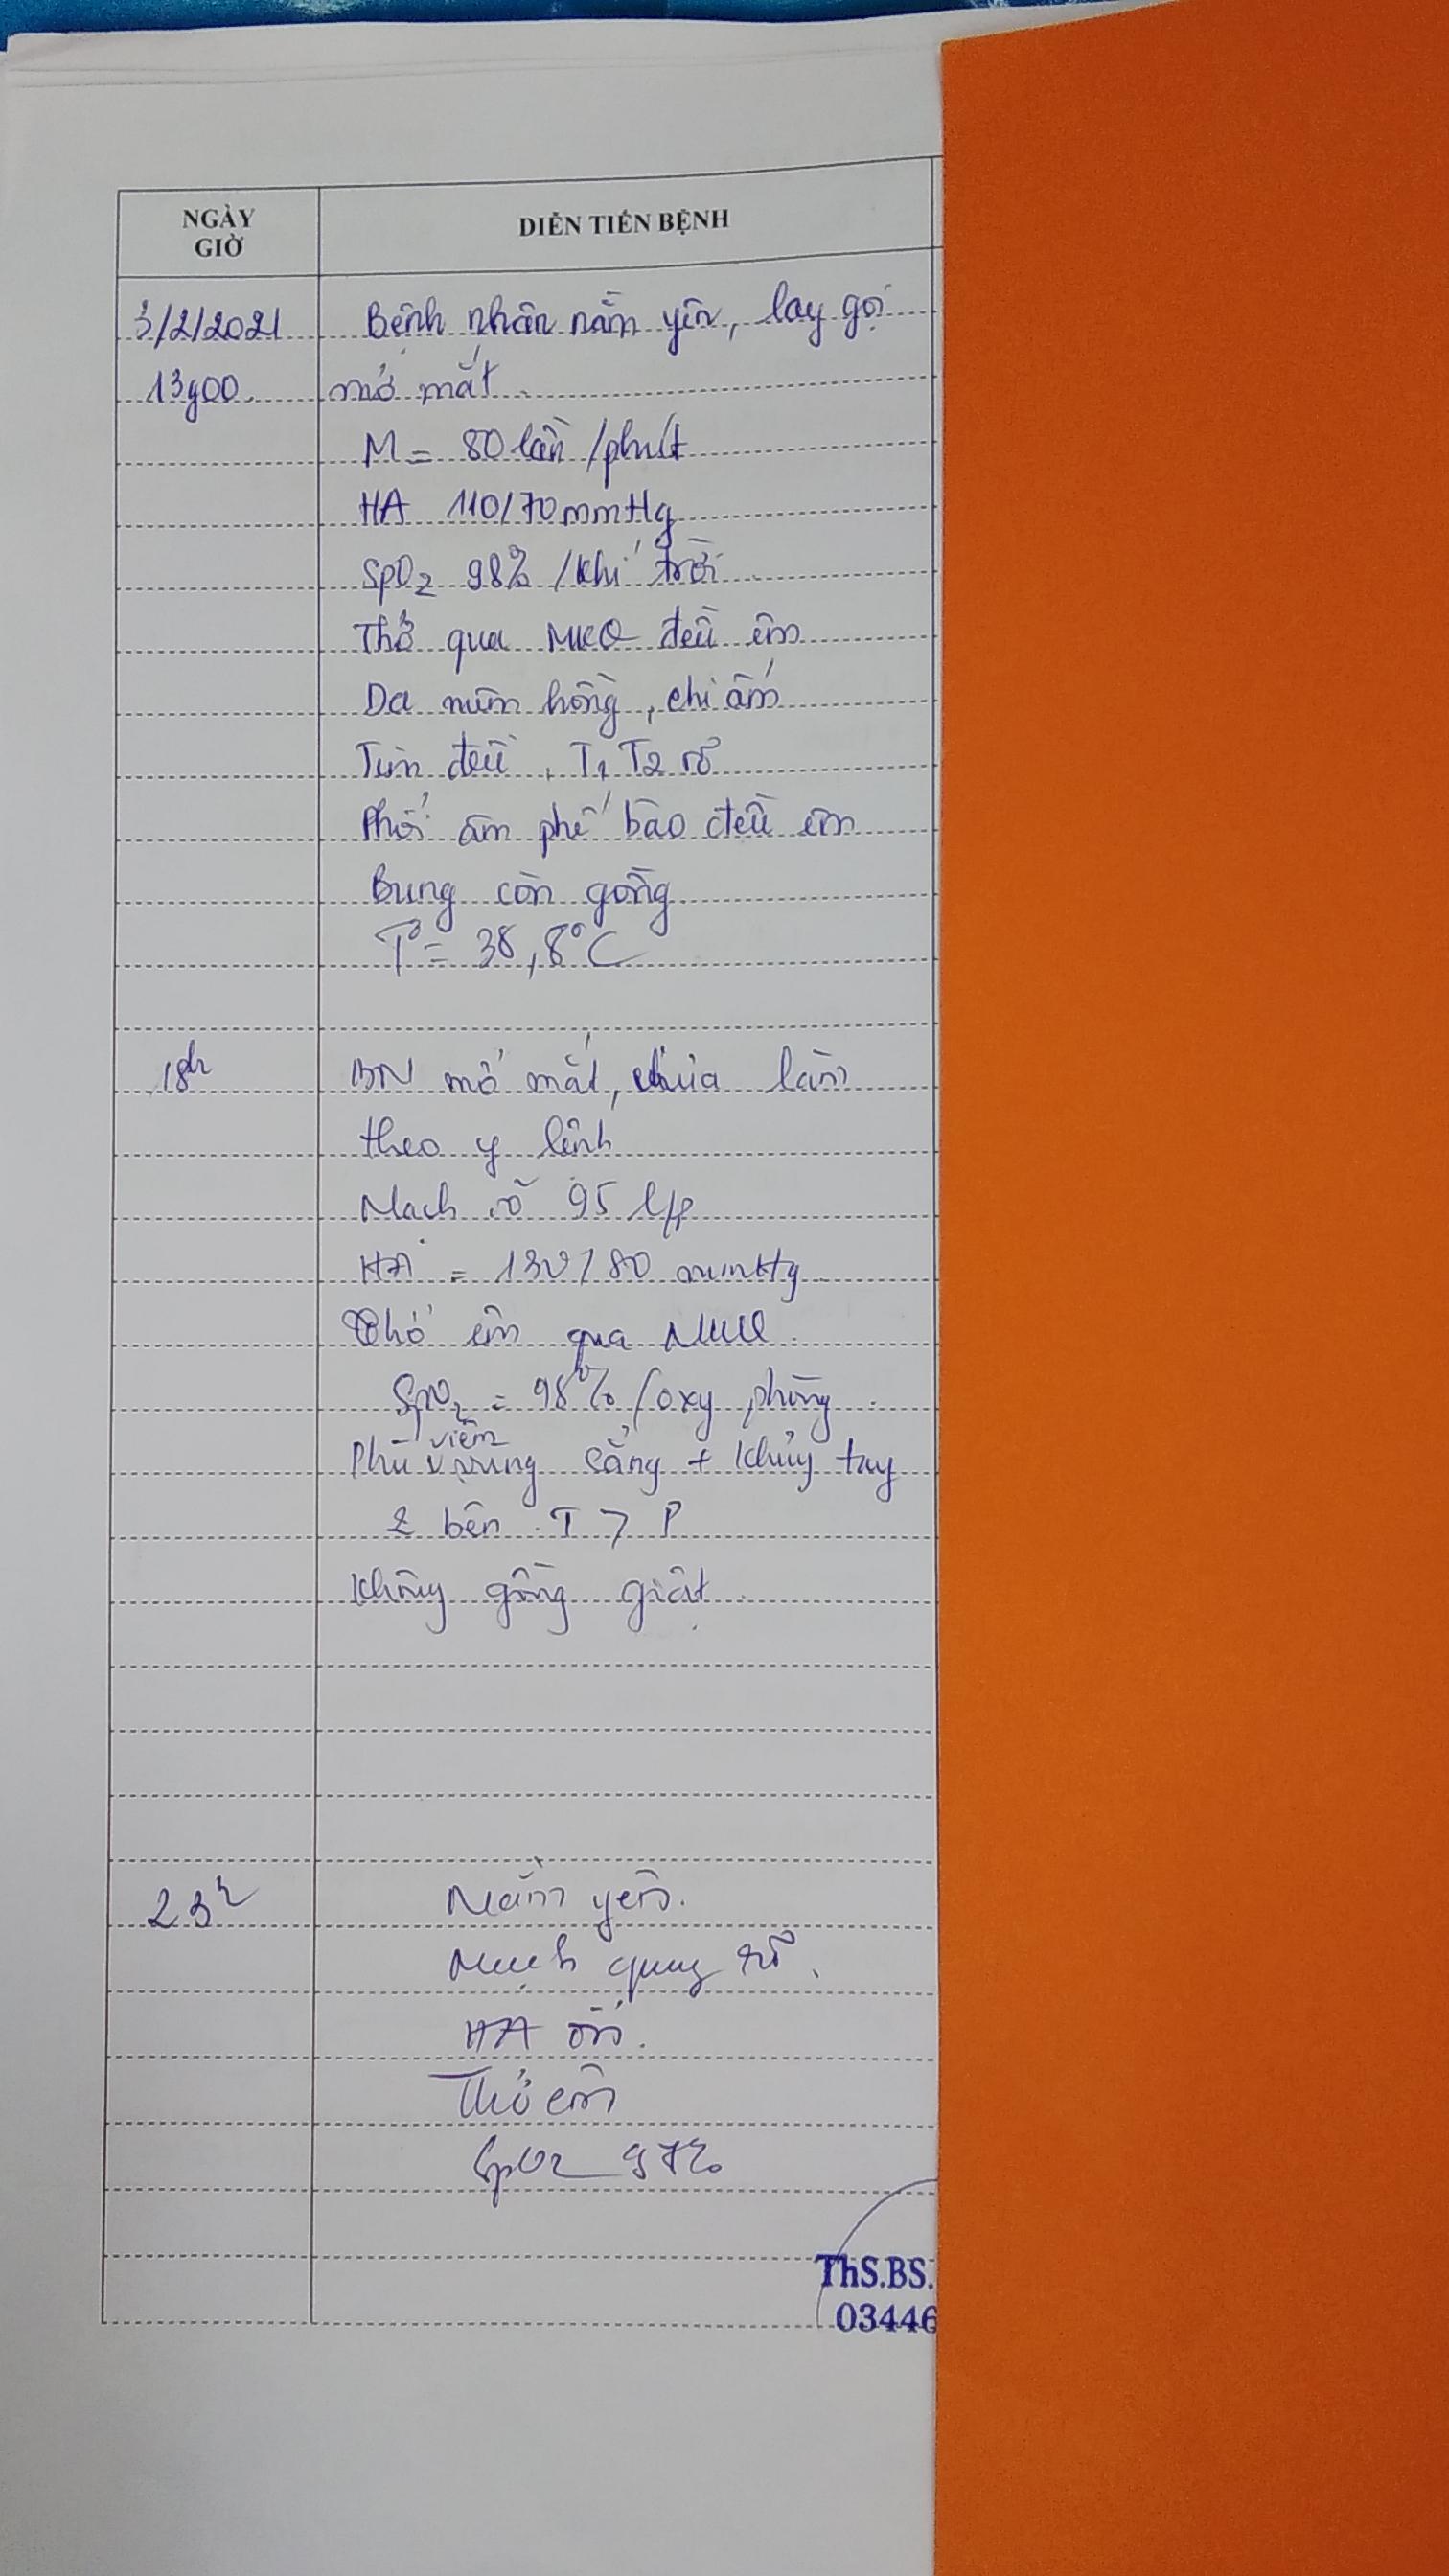 NGÀY
GIỜ
DIỄN TIẾN BỆNH
3/2/2021 Bệnh nhân nằm yên, lay gọi
13g00 mở mắt
M = 80 lần/phút
HA 110/70mmHg
SpO2 98% /khí trời
Thở qua MKQ đều êm
Da niêm hồng, chi ấm
Tim đều, T1 T2 rõ
Phổi âm phế bào đều êm
Bụng còn gồng
T° = 38,8°C
18h BN mở mắt, chưa làm
theo y lệnh
Mạch rõ 95 l/p
HA = 130/80 mmHg
Thở êm qua MKQ
SpO2 = 98% /oxy phòng
Phù viêm vùng cẳng + khủy tay
2 bên T > P
Không gồng giật
23h Nằm yên.
Mạch quay rõ.
HA ổn.
Thở êm
SpO2 97%
ThS.BS.
03446